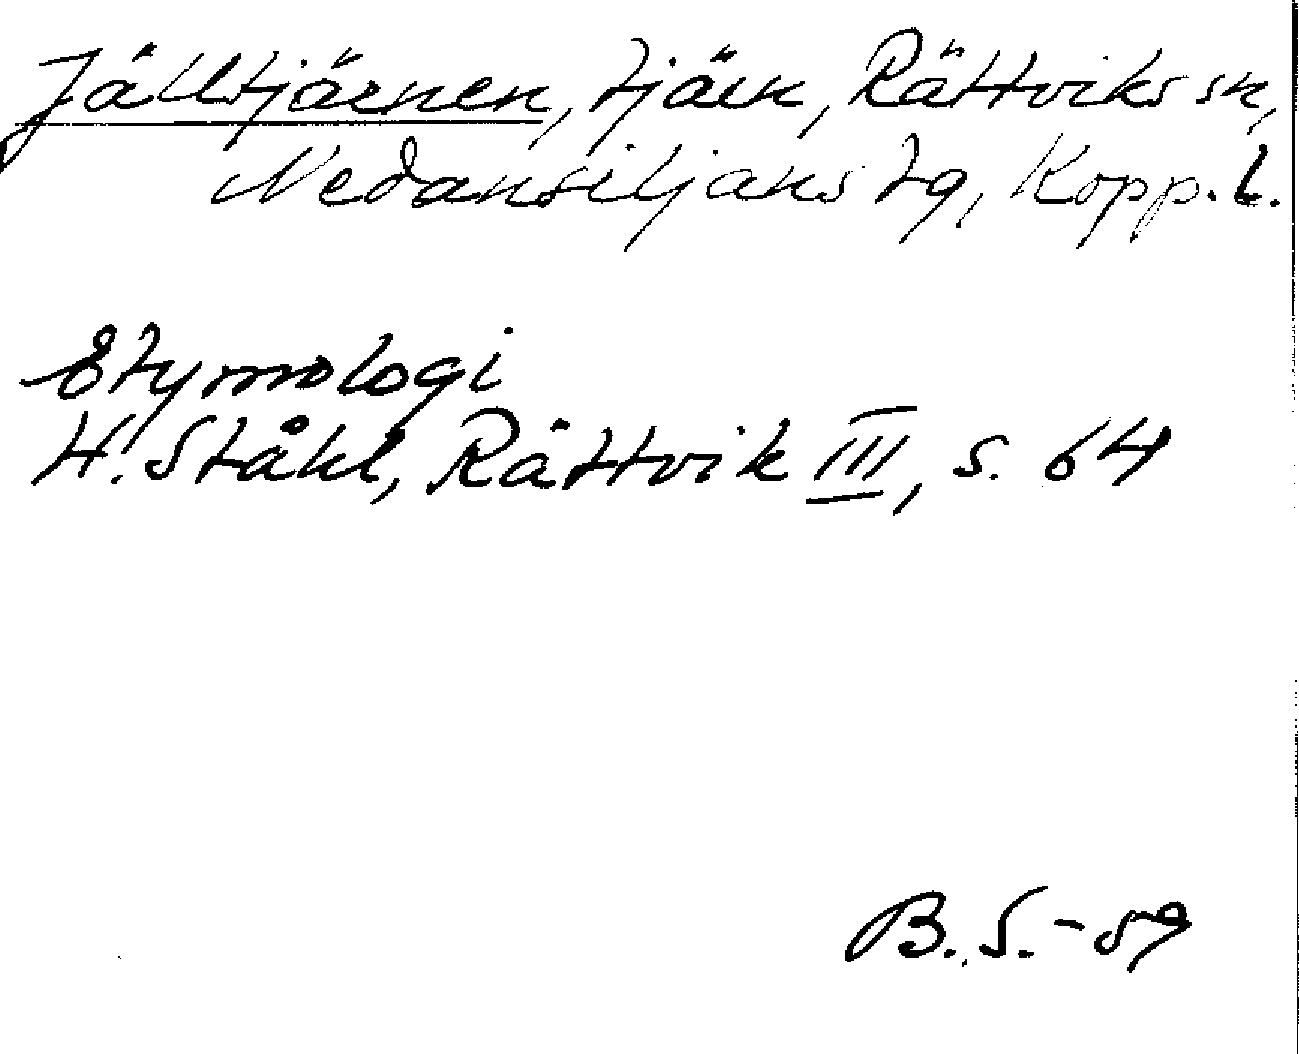 Jälltjärnen, tjärn, Rättviks sn,
Nedansiljans tg, Kopp. l.
Etymologi
H. Ståhl, Rättvik III, s. 64
B. S. - 59